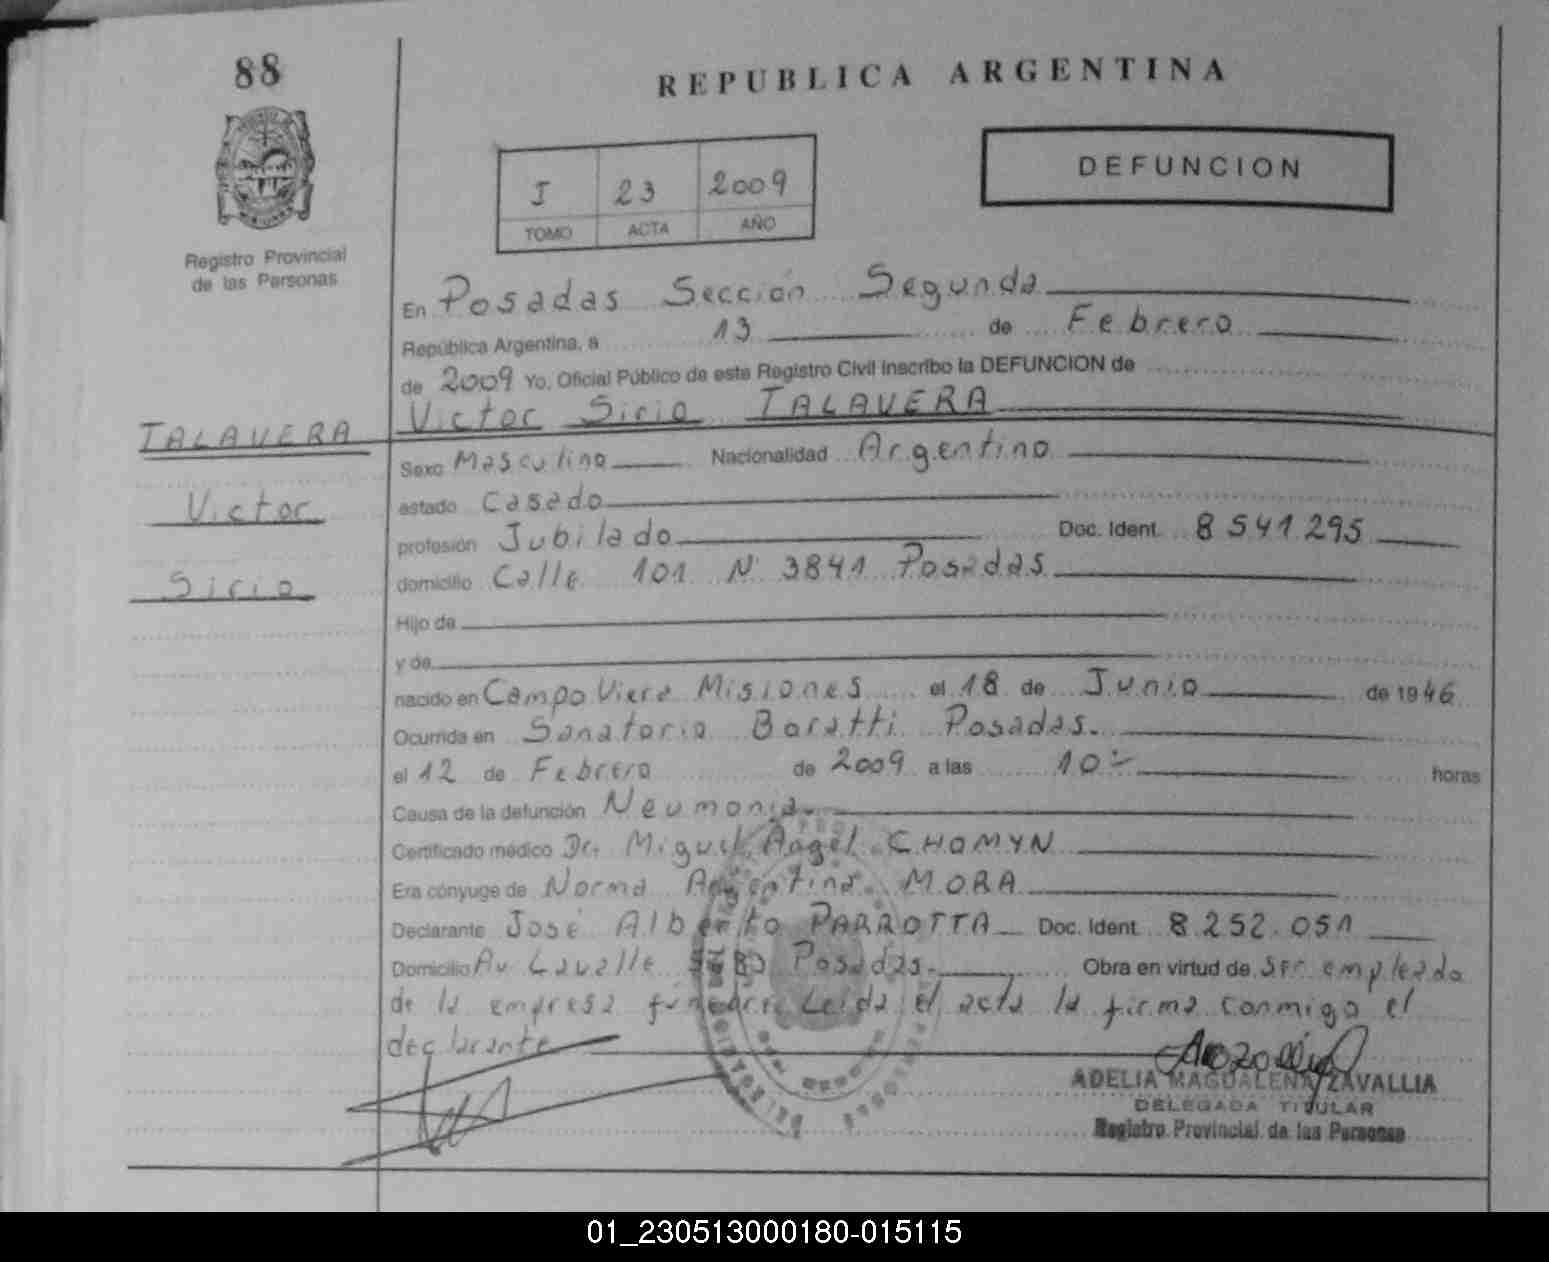 88
REPUBLICA ARGENTINA
DEFUNCION
I 23 2009
TOMO ACTA AÑO
Registro Provincial
de las Personas
En Posadas Sección Segunda
República Argentina, a 13 de Febrero
de 2009 Yo, Oficial Público de este Registro Civil inscribo la DEFUNCION de
Victor Sirio TALAVERA
TALAVERA
Victor
Sirio
Sexo Masculino Nacionalidad Argentino
estado Casado
profesión Jubilado Doc. Ident. 8 541 295
domicilio Calle 101 N° 3841 Posadas
Hijo de
y de
nacido en Campo Viera Misiones el 18 de Junio de 1946
Ocurrida en Sanatorio Boratti Posadas.
el 12 de Febrero de 2009 a las 10 horas
Causa de la defunción Neumonia.
Certificado médico Dr. Miguel Angel CHOMYN
Era cónyuge de Norma Argentina MORA
Declarante José Alberto PARROTTA Doc. Ident. 8.252.051
Domicilio Av Lavalle Posadas. Obra en virtud de ser empleado
de la empresa fúnebre. Leida el acta la firma conmigo el
declarante
ADELIA MAGDALENA ZAVALLIA
DELEGADA TITULAR
Registro Provincial de las Personas
01_230513000180-015115